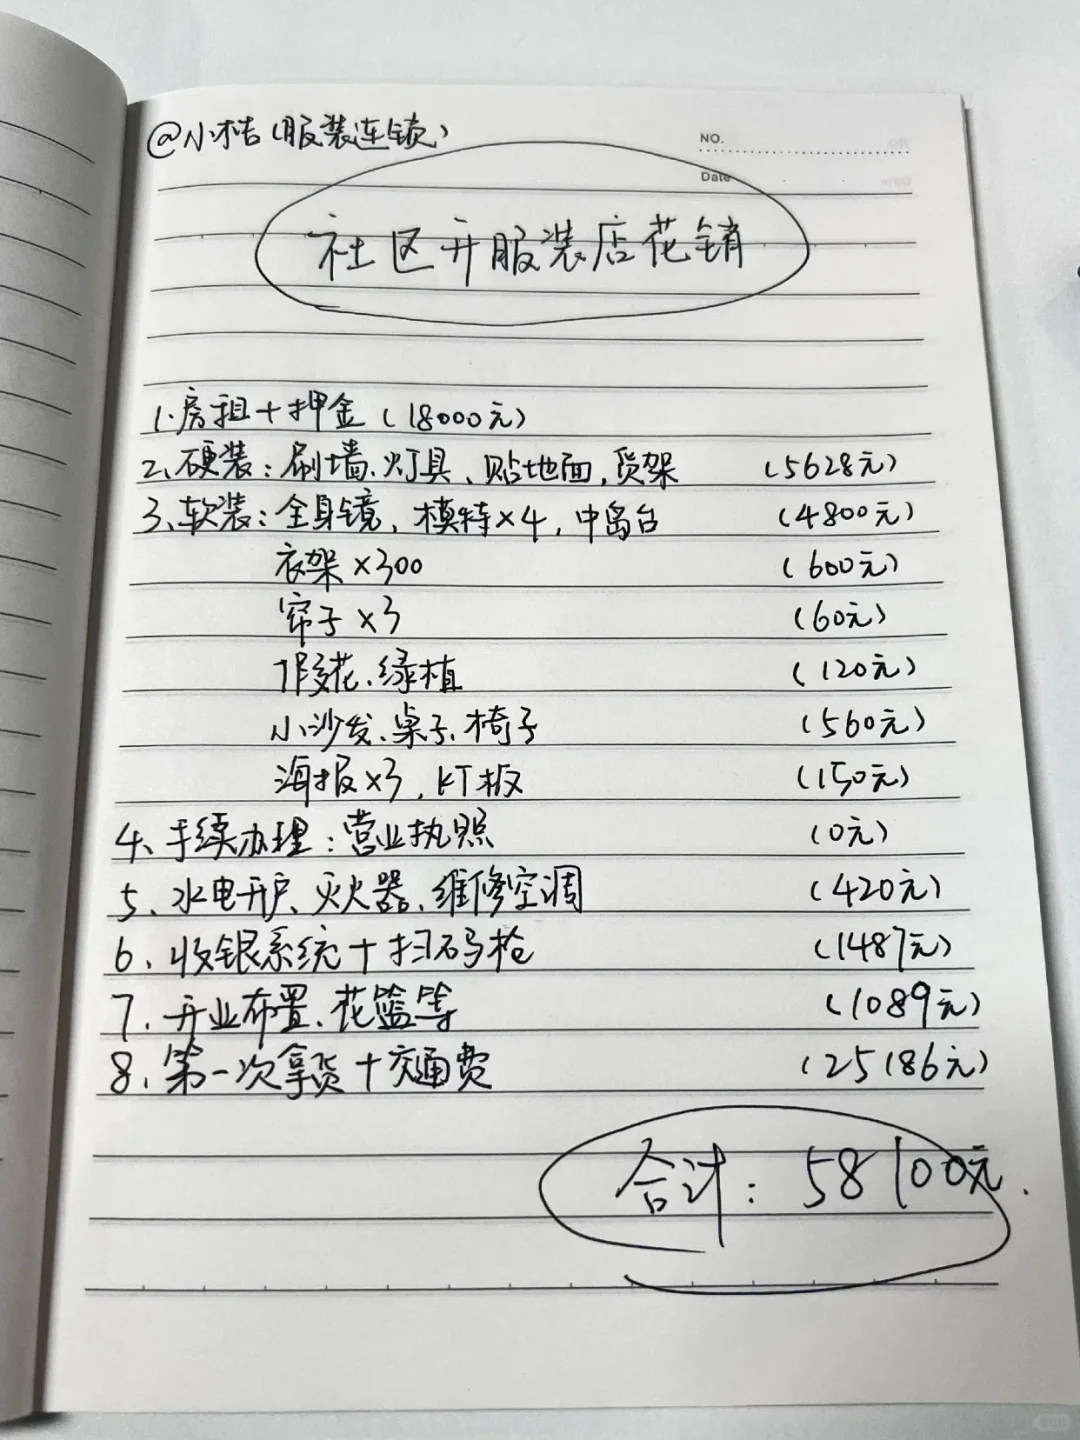 @小桔(服装连锁)
NO.
Date
社区开服装店花销
1.房租+押金(18000元)
2、硬装:刷墙、灯具、贴地面,货架 (5628元)
3、软装:全身镜,模特×4,中岛台 (4800元)
衣架×300 (600元)
帘子×3 (60元)
假花、绿植 (120元)
小沙发、桌子、椅子 (560元)
海报×3,KT板 (150元)
4、手续办理:营业执照 (0元)
5、水电开户、灭火器、维修空调 (420元)
6、收银系统+扫码枪 (1487元)
7、开业布置、花篮等 (1089元)
8、第一次拿货+交通费 (25186元)
合计:58100元.